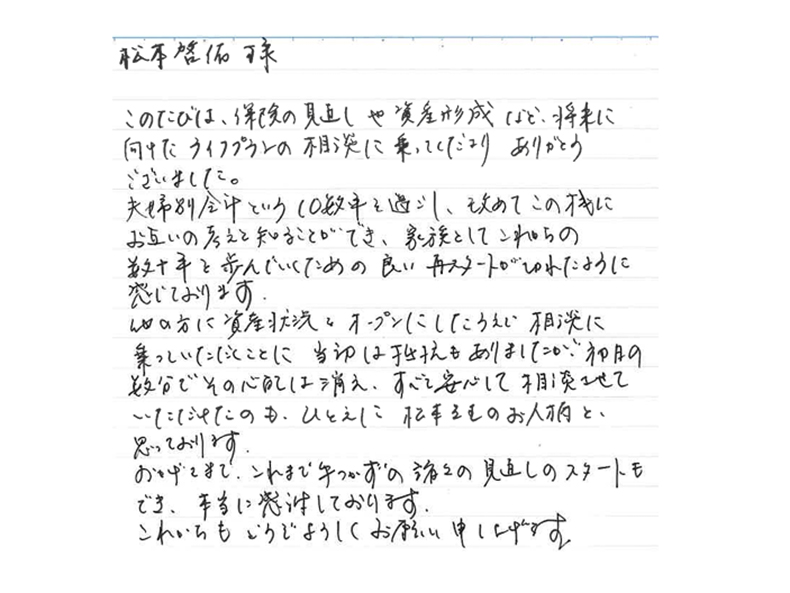 松本啓佑 様
このたびは、保険の見直しや資産形成など、将来に
向けたライフプランの相談に乗ってくださり ありがとう
ございました。
夫婦別会計という10数年を過ごし、改めてこの機に
お互いの考えを知ることができ、家族としてこれからの
数十年を歩んでいくための良い再スタートが切れたように
感じております.
他の方に資産状況をオープンにしたうえで相談に
乗っていただくことに 当初は抵抗もありましたが、初日の
数分でその心配は消え、すべて安心して相談させて
いただけたのも、ひとえに 松本さまのお人柄と、
思っております.
おかげさまで、これまで手つかずの諸々の見直しのスタートも
でき、本当に感謝しております.
これからもどうぞよろしくお願い申し上げます.